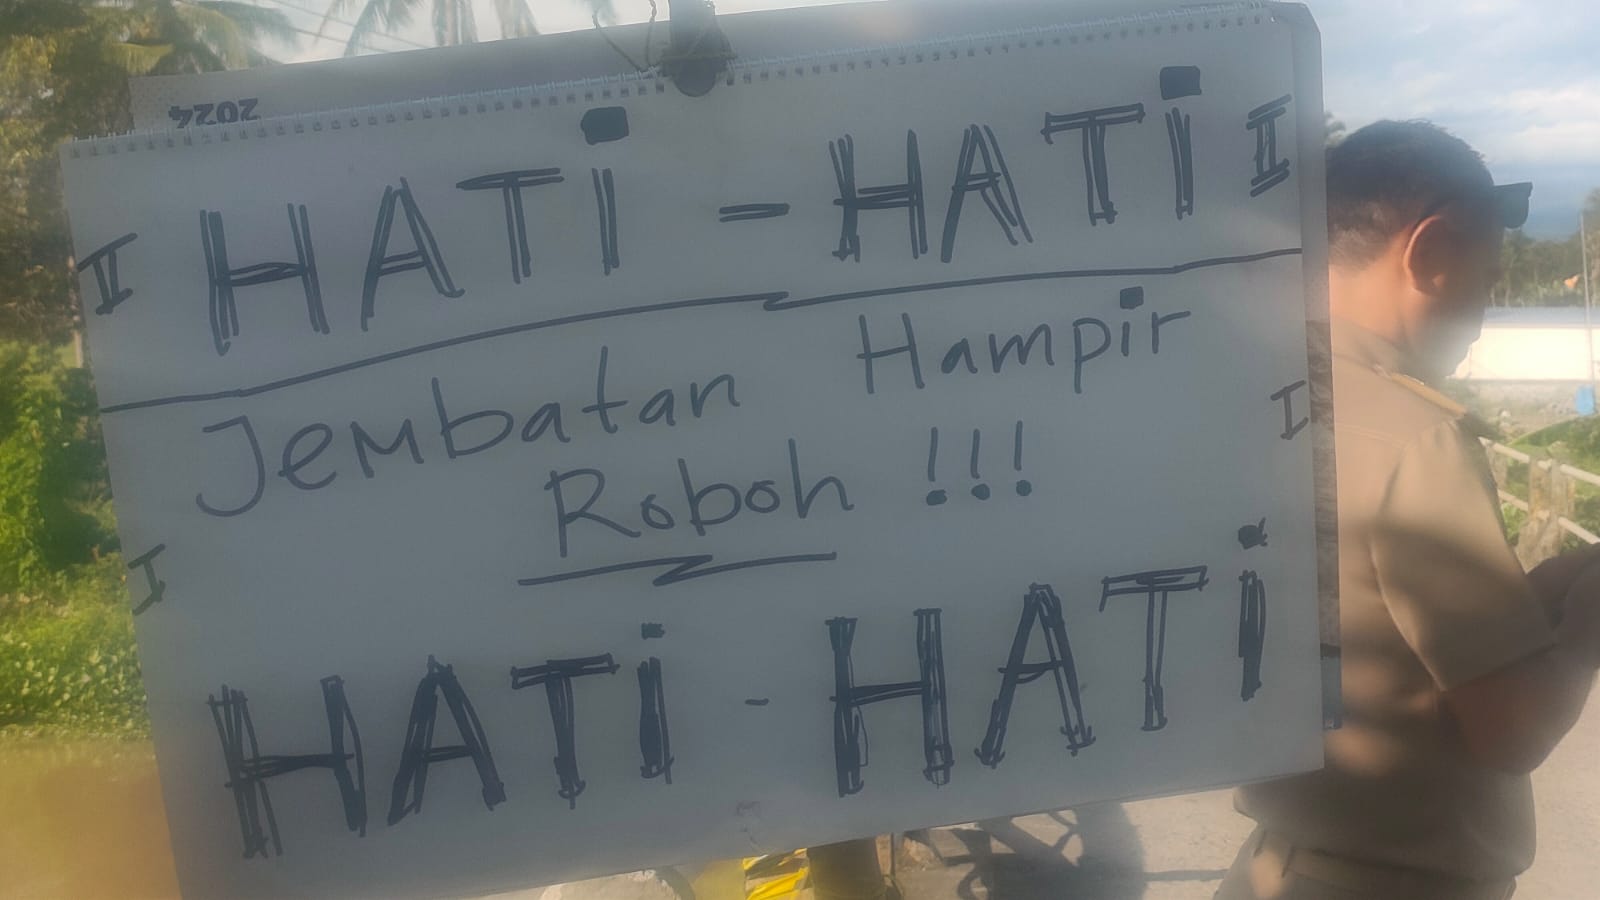 2024
II HATi - HATi II
Jembatan Hampir I
Roboh !!!
I
HATi - HATi